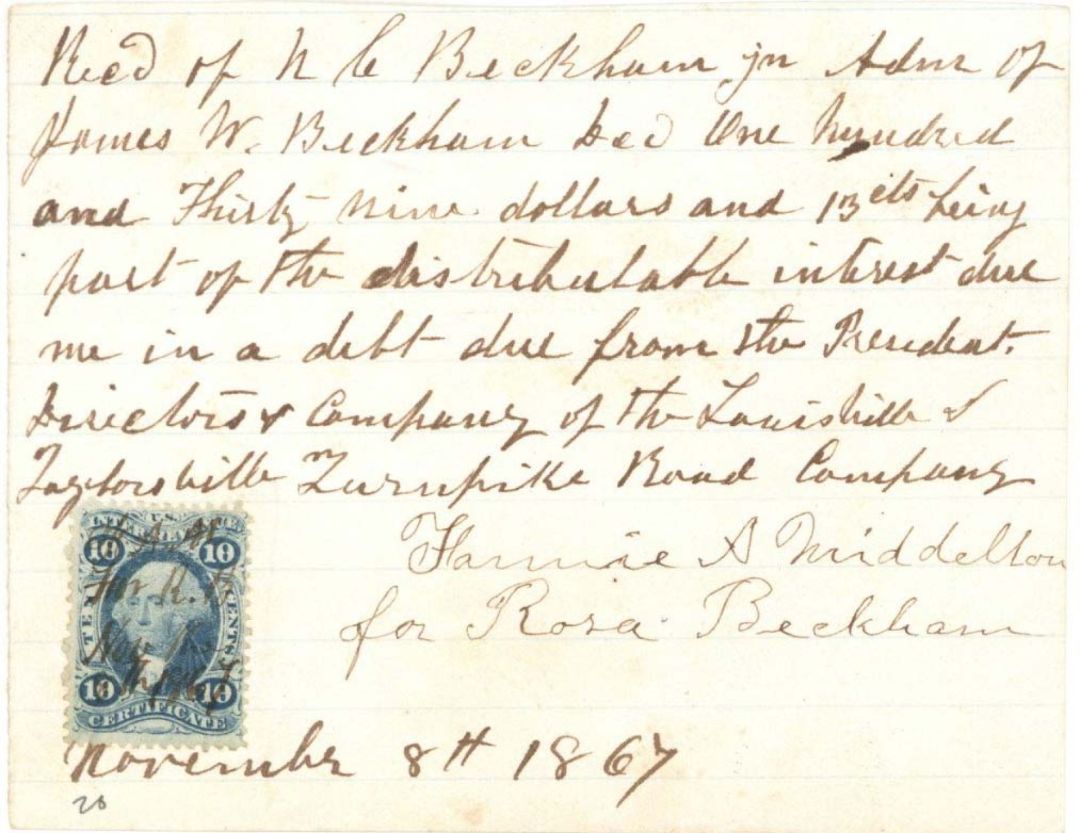 Recd of N C Beckham jr Admr of
James W. Beckham Decd One hundred
and Thirty-nine dollars and 13 cts being
part of the distributable interest due
me in a debt due from the President.
Directors & Company of the Louisville &
Taylorsville Turnpike Road Company
Fannie A Middelton
for Rosa Beckham
U.S. INTER. REVENUE
10 10
TEN CENTS
10 10
CERTIFICATE
for R. B
Nov
1867
November 8th 1867
20